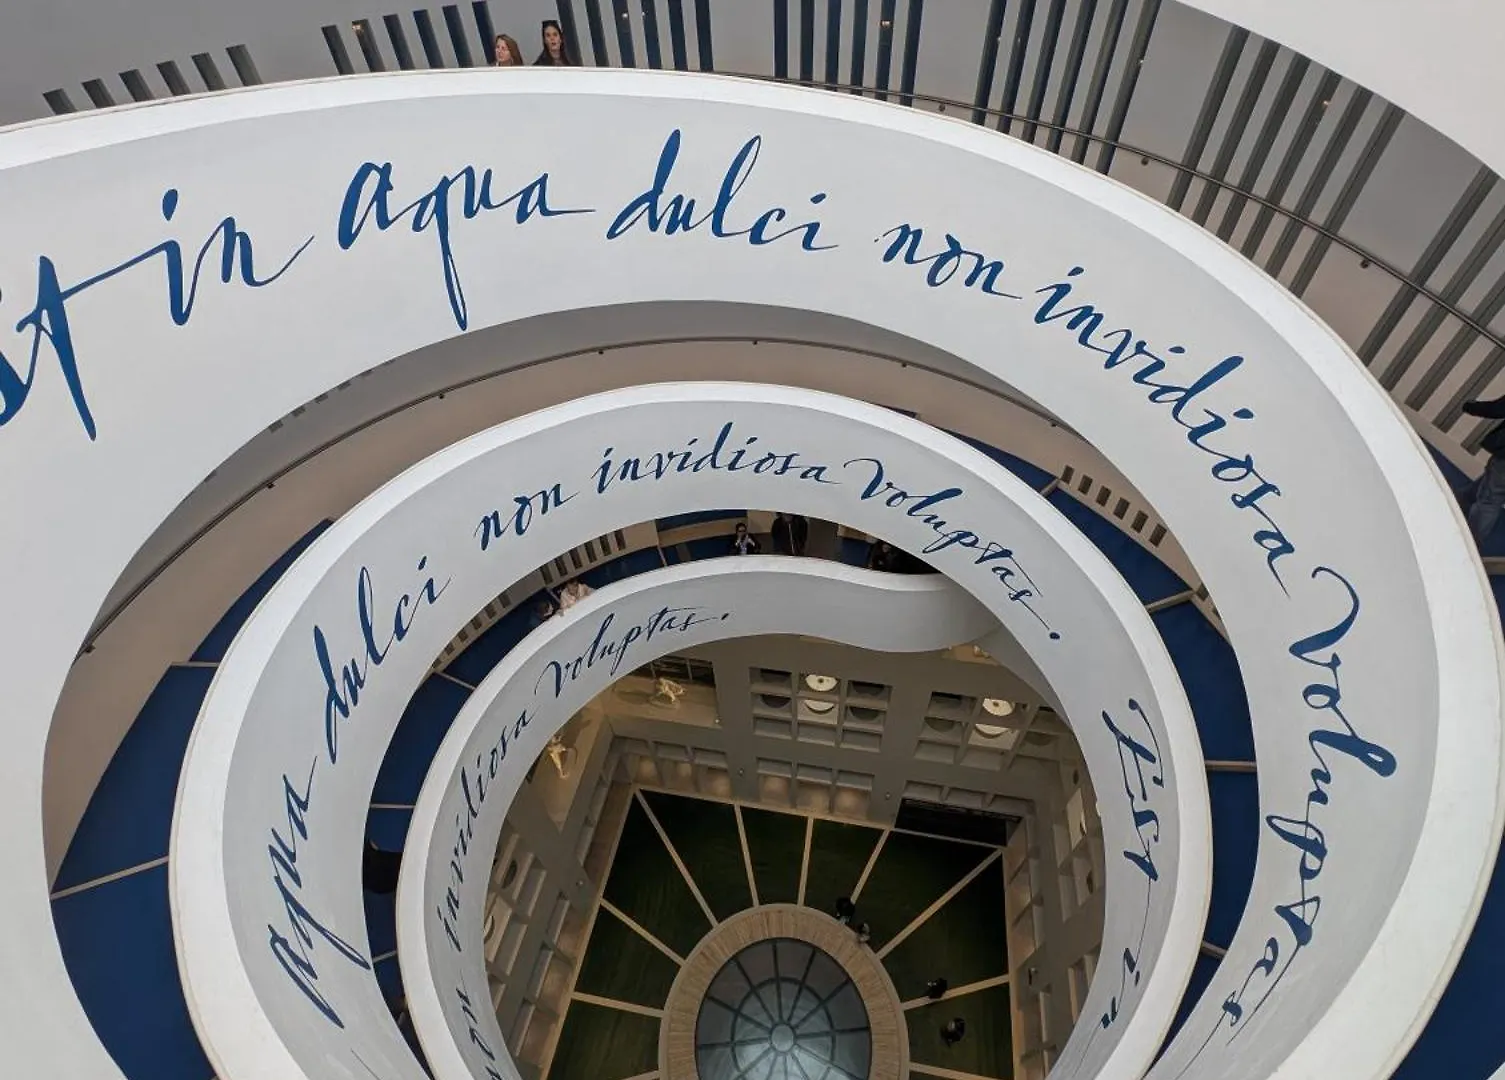 st in aqua dulci non invidiosa voluptas
aqua dulci non invidiosa voluptas. Est in
non invidiosa voluptas.